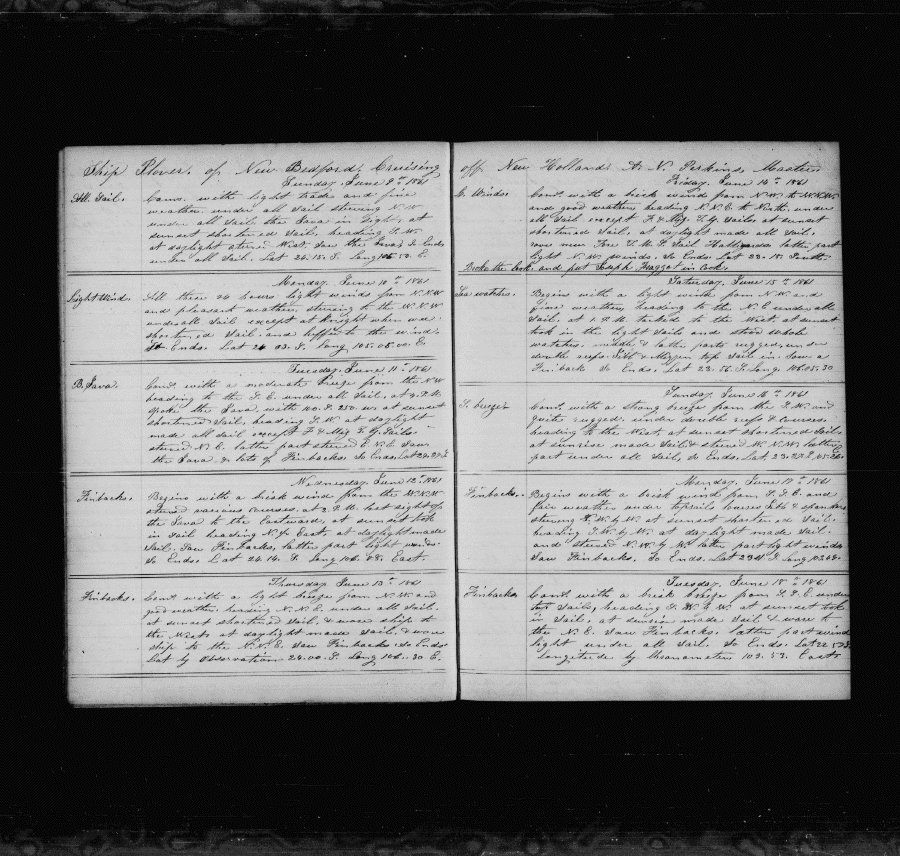 Ship Plover. of New Bedford, Cruising
Sunday, June 9th 1861
All Sail. Coms. with light trade and fine
weather. under all sail steering N.W
under all sail the Java in sight, at
sunset shortened Sail, heading S.W.
at daylight steered West. Saw the Java, So Ends
under all Sail. Lat 24.15. S. Long 105.50. E.
Monday, June 10th 1861
Light Wind. All these 24 hours light winds from N.N.W
and pleasant weather, steering to the W.N.W
under all Sail except at knight when we
shortened Sail and luff to the wind.
So Ends. Lat 24.03. S. Long 105.05.00. E.
Tuesday, June 11th 1861
B. Java. Coms. with a moderate breeze from the N.W
heading to the S.E. under all Sail, at 4. P.M.
spoke the Java, with 100. S. 250. w. at sunset
shortened Sail, heading S.W. at daylight
made all sail except F & Miz T. G. Sails
steered N.E. latter part steered E.N.E Saw
the Java & lots of Finbacks. So Ends. Lat 24.27. S
Wednesday, June 12th 1861
Finbacks. Begins with a brisk wind from the N.N.W
steered various courses. at 2. P.M. lost sight of
the Java to the Eastward, at sunset took
in Sail heading N. & East. at daylight made
Sail. Saw Finbacks, latter part light winds.
So Ends. Lat 24.14. S. Long 106.48. East.
Thursday June 13th 1861
Finbacks. Coms. with a light breeze from N.W. and
good weather heading N.N.E. under all Sail.
at sunset shortened Sail. & wore ship to
the West. at daylight made Sail. & wore
ship to the N.N.E. Saw Finbacks. So Ends
Lat by Observation 24.00. S. Long 106.30 E.
off New Holland. A. N. Perkins, Master
Friday, June 14th 1861
Coms. with a brisk wind from N.W. to W.N.W.
and good weather, heading N.N.E. to North. under
all Sail except F & Miz. T. G. Sails. at sunset
shortened Sail, at daylight made all Sail.
rove new Fore T. M. S. Sail Halliards latter part
light N.W. winds. So Ends. Lat 23.18. South
Broke the Cook, and put Joseph Maggot in Cook.
Saturday, June 15th 1861
Sea watches. Begins with a light wind from N.W. and
fine weather, heading to the N.E. under all
Sail. at 2. P.M. tacked to the West. at sunset
took in the light Sails and stood whole
watches. middle & latter parts rugged, under
double reefs. Jibb & Mizen top Sail in. Saw a
Finback So Ends, Lat 23.56. S. Long. 106.05.30
Sunday, June 16th 1861
S. breeze. Coms. with a strong breeze from the S.W. and
quite rugged, under double reefs & courses.
heading to the West. at sunset shortened Sail,
at sunrise made Sail & steered W.N.W. latter
part under all Sail, So Ends. Lat. 23.22. S.
Monday, June 17th 1861
Finbacks. Begins with a brisk wind from S.S.E. and
fair weather under topsails courses Jibb & spanker
steering N.W. by W. at sunset shortened Sail.
heading S.W. by W. at daylight made Sail.
and steered N.W. by W. latter part light winds
Saw Finbacks. So Ends. Lat 23
Tuesday, June 18th 1861
Finbacks. Coms. with a brisk breeze from S.S.E. under
Sails, heading S.W. by W at sunset took
in Sail, at sunrise made Sail & wore to
the N.E. Saw Finbacks. latter part wind
light under all Sail. So Ends. Lat 22
Longitude by Chronometer 103.53. East